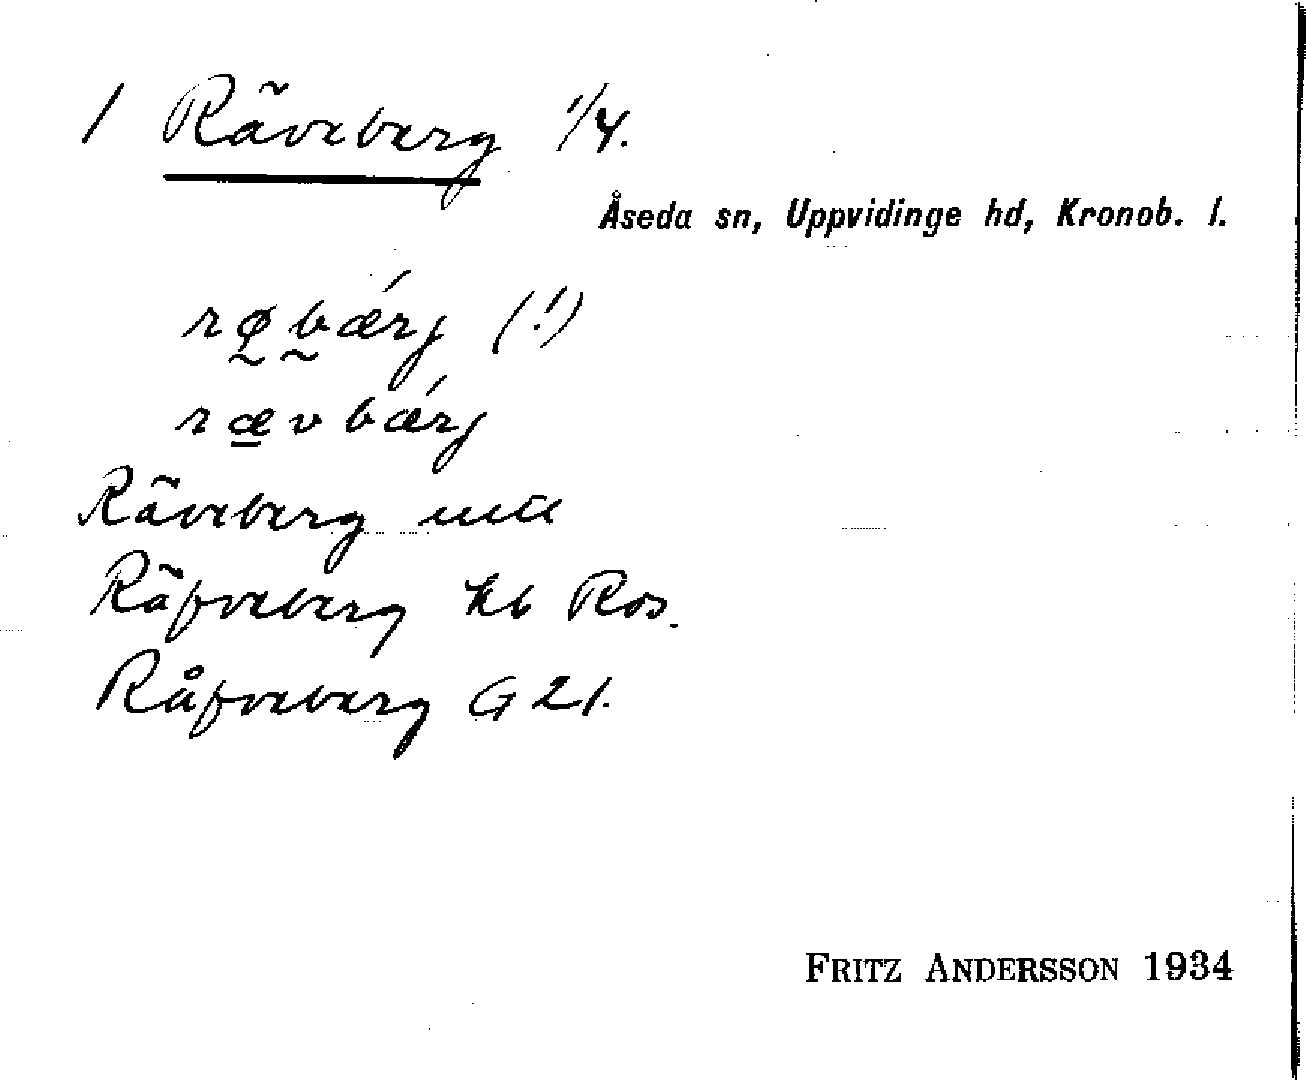 1 Räveberg 1/4.
Åseda sn, Uppvidinge hd, Kronob. l.
røbǽrj (!)
rævbǽrj
Räveberg
Räfveberg kb Ros.
Råfveberg G 21.
FRITZ ANDERSSON 1934